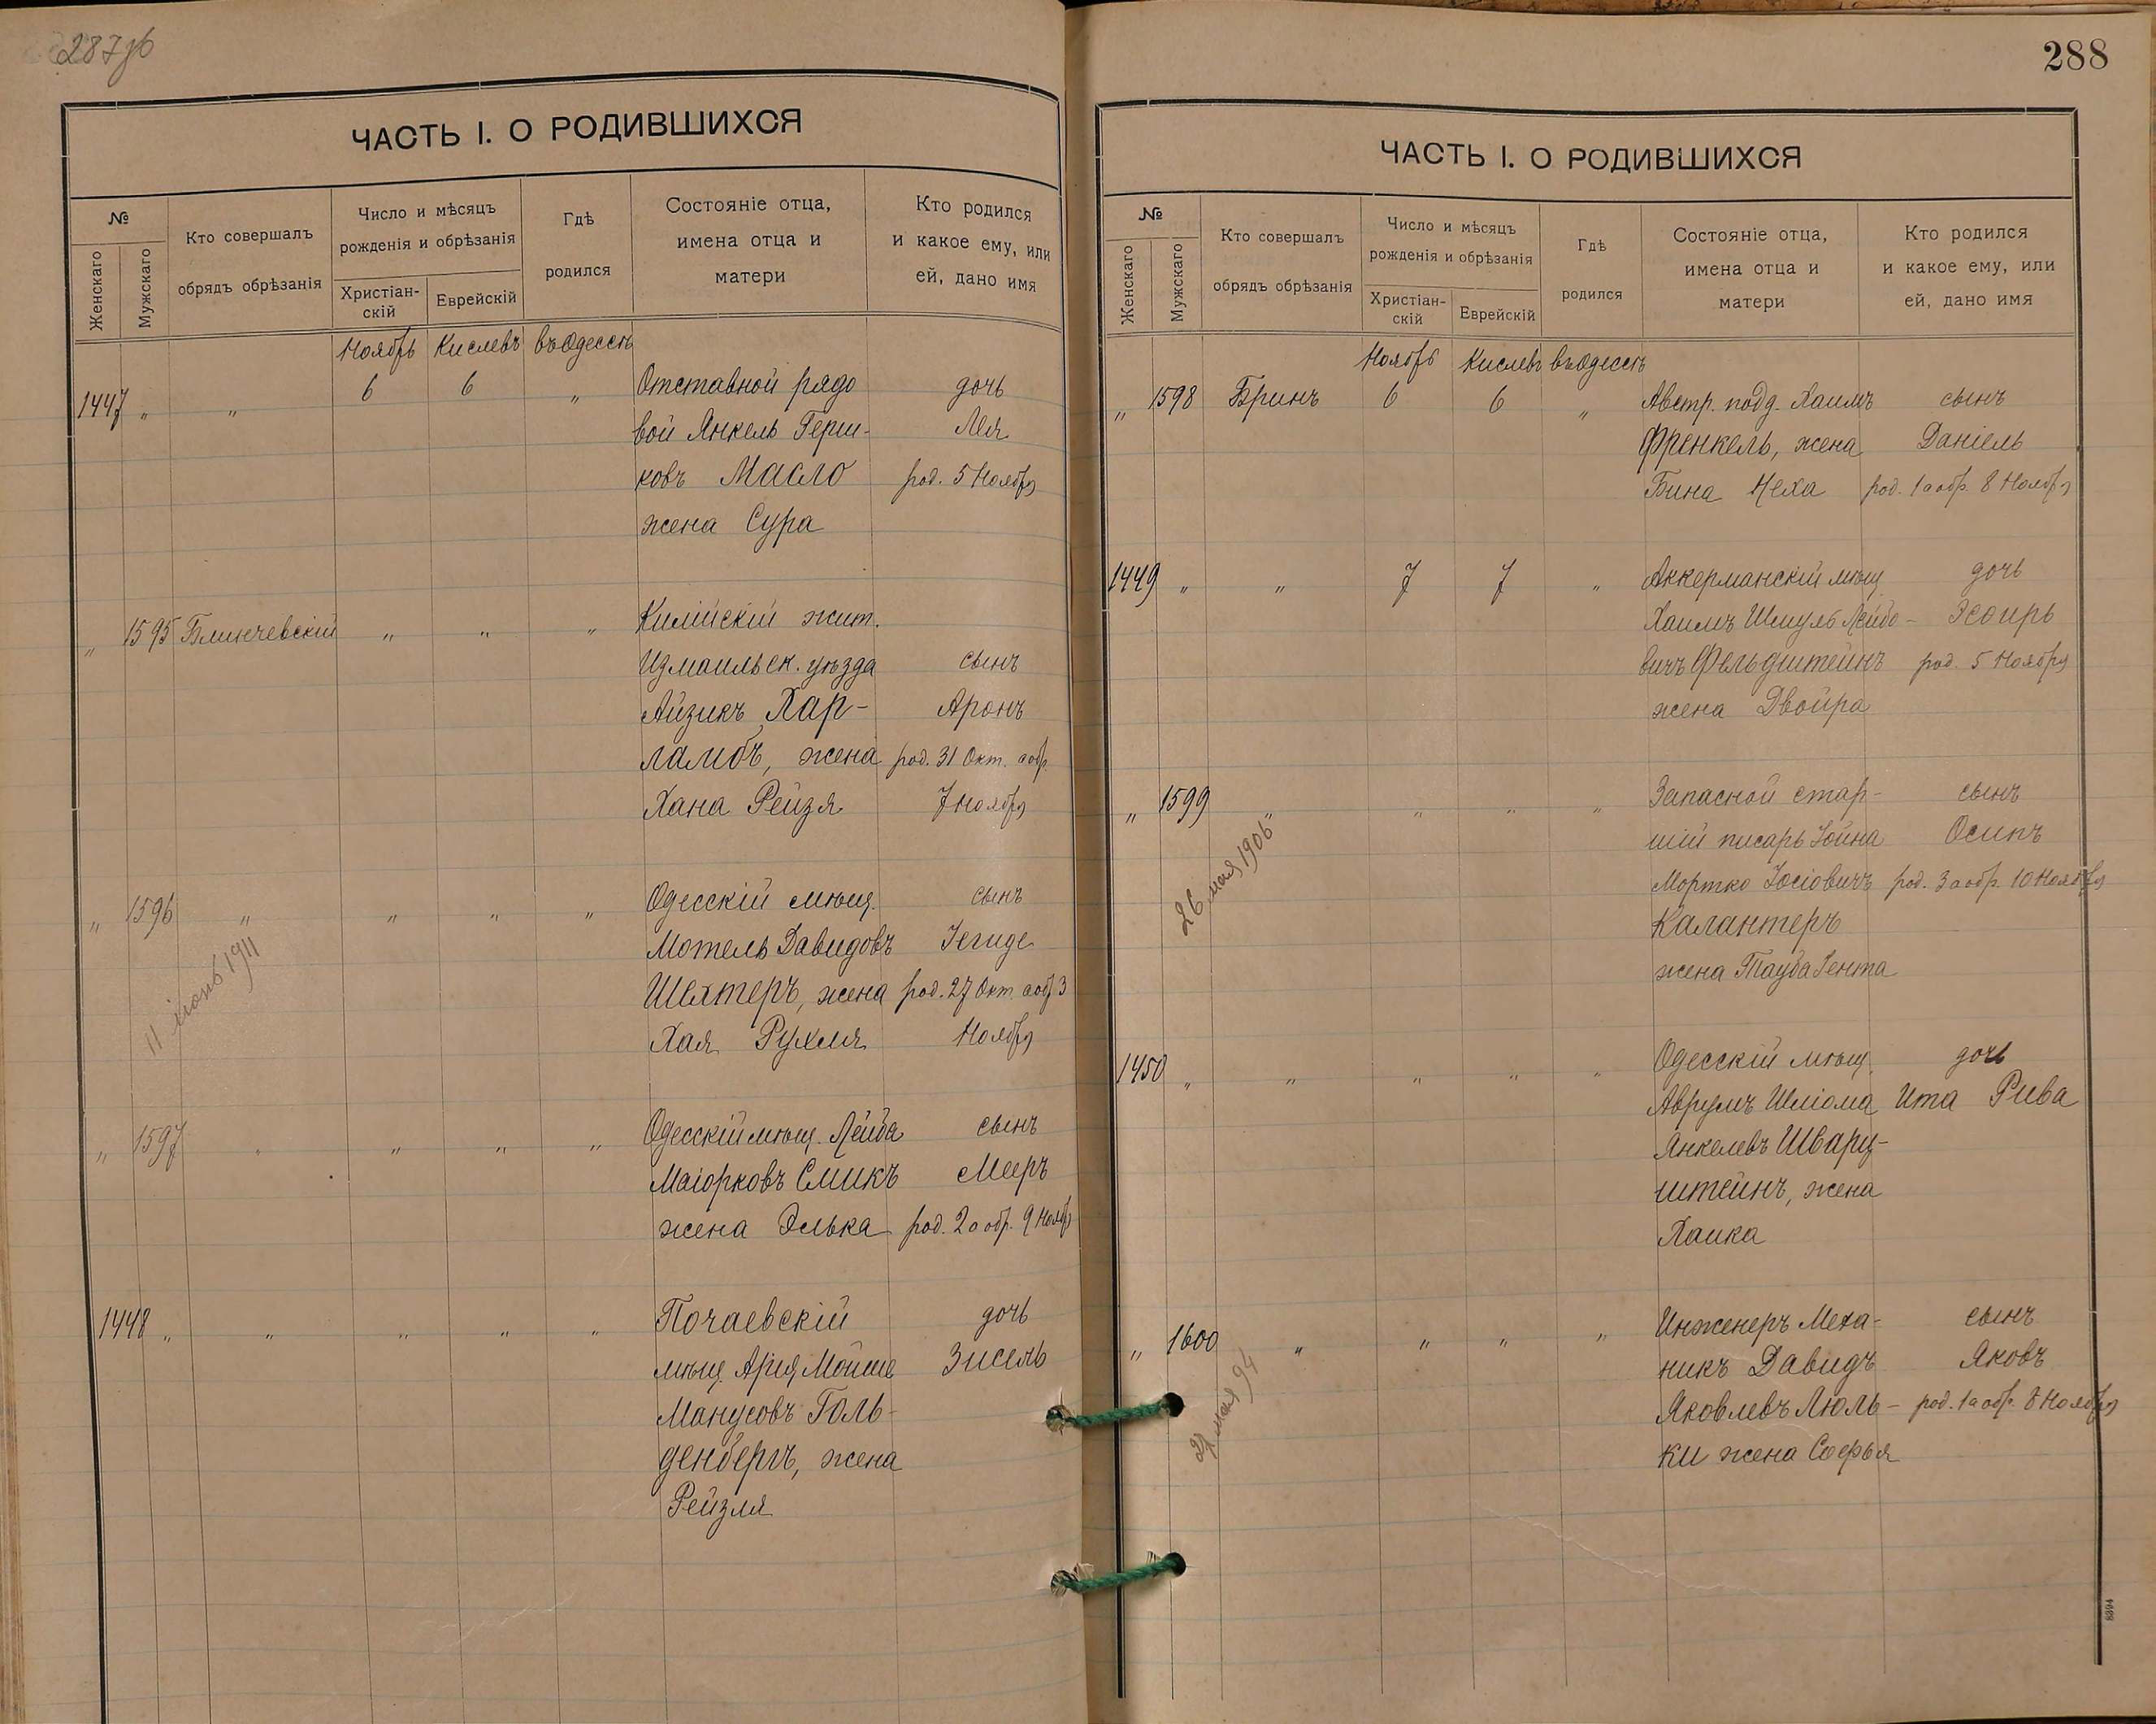 287 об
ЧАСТЬ I. О РОДИВШИХСЯ
№
Женскаго
Мужскаго
Кто совершалъ
обрядъ обрѣзанія
Число и мѣсяцъ
рожденія и обрѣзанія
Христіан-
скій
Еврейскій
Гдѣ
родился
Состояніе отца,
имена отца и
матери
Кто родился
и какое ему, или
ей, дано имя
Ноябрь Кислевъ въ Одессѣ
1447 „ „ 6 6 „ Отставной рядо дочь
вой Янкель Герш- Лея
ковъ Масло род. 5 Ноября
жена Сура
„ 1595 Блинчевскій „ „ „ Килійскій жит.
Измаильск. уѣзда сынъ
Айзикъ Хар- Аронъ
ламбъ, жена род. 31 Окт. а обр.
Хана Рейзя 7 Ноября
„ 1596 „ „ „ „ Одесскій мѣщ. сынъ
Мотель Давидовъ Іегуде
Шехтеръ, жена род. 27 Окт. а обр. 3
Хая Рухля Ноября
11 іюнь 1911
„ 1597 „ „ „ „ Одесскій мѣщ. Лейба сынъ
Маіорковъ Смикъ Мееръ
жена Элька род. 2 а обр. 9 Ноябр
1448 „ „ „ „ „ Почаевскій дочь
мѣщ. Арія Мойше Зисель
Манусовъ Голь-
денбергъ, жена
Рейзля
288
ЧАСТЬ I. О РОДИВШИХСЯ
№
Женскаго
Мужскаго
Кто совершалъ
обрядъ обрѣзанія
Число и мѣсяцъ
рожденія и обрѣзанія
Христіан-
скій
Еврейскій
Гдѣ
родился
Состояніе отца,
имена отца и
матери
Кто родился
и какое ему, или
ей, дано имя
Ноябрь Кислевъ въ Одессѣ
„ 1598 Бринъ 6 6 „ Австр. подд. Хаимъ сынъ
Френкель, жена Даніель
Бина Неха род. 1 а обр. 8 Ноября
1449 „ „ 7 7 „ Аккерманскій мѣщ дочь
Хаимъ Шмуль Лейбо- Эсѳирь
вичъ Фельдштейнъ род. 5 Ноября
жена Двойра
„ 1599 „ „ „ „ Запасной стар- сынъ
шій писарь Іойна Осипъ
Мортко Іосіовичъ род. 3 а обр. 10 Ноября
Калантеръ
жена Тауба Гента
26 мая 1906
1450 „ „ „ „ „ Одесскій мѣщ. дочь
Аврумъ Шліома Ита Рива
Янкелевъ Шварц-
штейнъ, жена
Хаика
„ 1600 „ „ „ „ Инженеръ Меха- сынъ
никъ Давидъ Яковъ
Яковлевъ Люль- род. 1 а обр. 8 Ноября
ки жена Софья
мая 94
8394